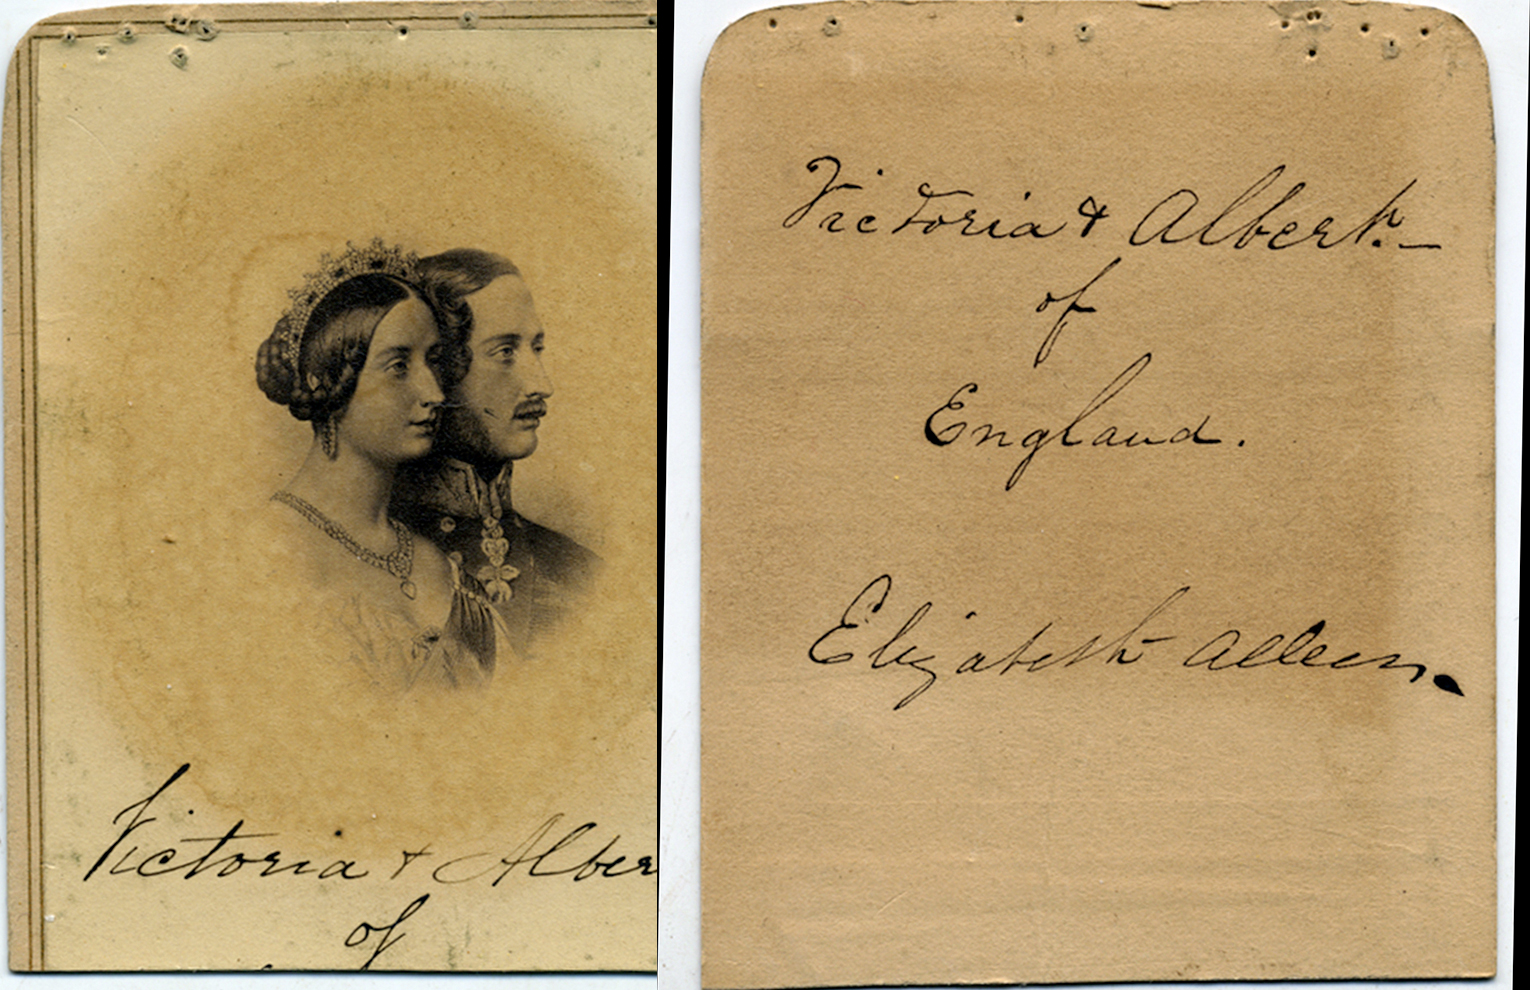 Victoria & Alber
of
Victoria & Albert. —
of
England.
Elizabeth Allen.